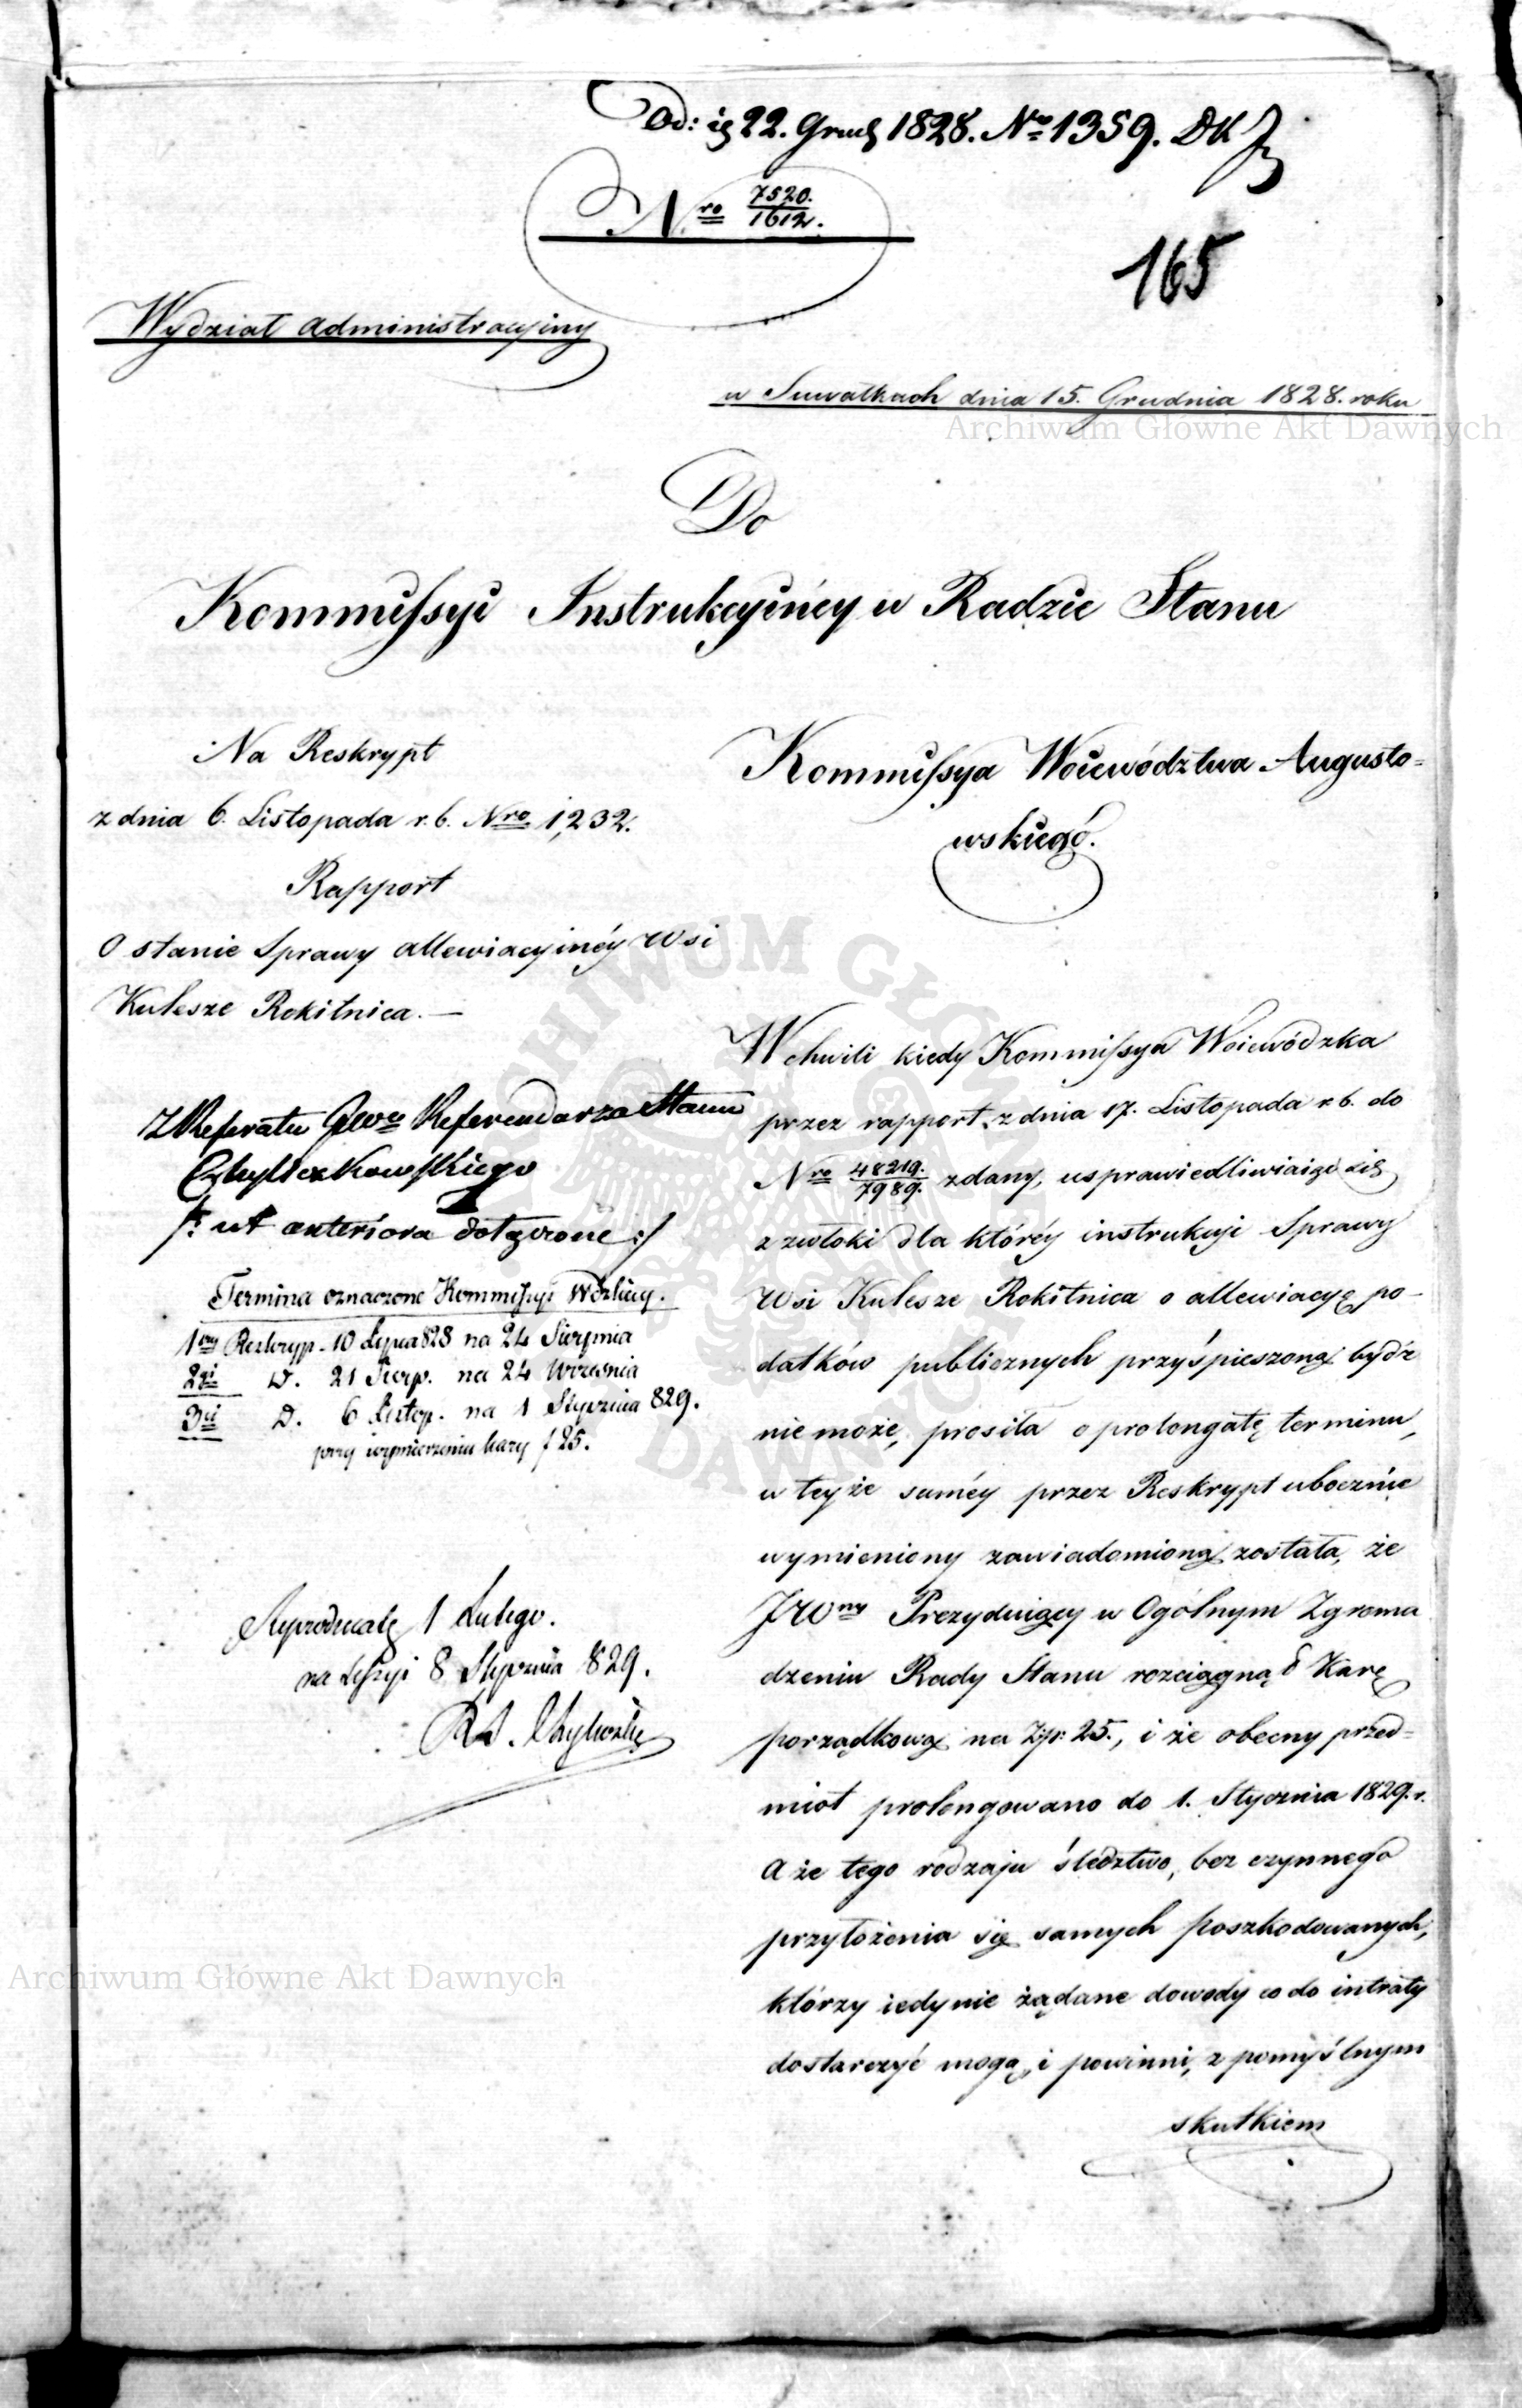 Od: is 22. Grud 1828. No 1359. DK
Nro 7520./1612.
165
Wydział Administracyiny
w Suwałkach dnia 15. Grudnia 1828. roku
Archiwum Główne Akt Dawnych
Do
Kommissyi Instrukcyinéy w Radzie Stanu
Na Reskrypt
z dnia 6. Listopada r. b. Nro 1,232.
Rapport
O stanie Sprawy allewiacyinéy Wsi
Kulesze Rokitnica. —
Kommissya Woiewództwa Augusto=
wskiego.
Z Referatu Referendarza Stanu
/: ut anteriora dołączone :/
Termina oznaczone Kommissyi Wdzkiey.
1szy Reskryp. 10 Lipca 828 na 24 Sierpnia
2gi D. 21 Sierp. na 24 Września
3ci D. 6 Listop. na 1 Stycznia 829.
przy wymierzeniu kary f 25.
Reprodukatę 1 Lutego.
na Sessyi 8 Stycznia 829.
W chwili kiedy Kommissya Woiewódzka
przez rapport z dnia 17. Listopada r. b. do
Nro 48219./7989. zdany, usprawiedliwiaiąc się
z zwłoki dla któréy instrukcyi Sprawy
Wsi Kulesze Rokitnica o allewiacyę po-
datków publicznych przyśpieszoną bydź
nie może, prosiła o prolongatę terminu,
w teyże saméy przez Reskrypt ubocznie
wymieniony zawiadomioną została, że
JWny Prezyduiący w Ogólnym Zgroma
dzeniu Rady Stanu rozciągnął Karę
porządkową na Złp: 25., i że obecny przed=
miot prolongowano do 1. Stycznia 1829. r.
A że tego rodzaju śledztwo, bez czynnego
przyłożenia się samych poszkodowanych,
którzy iedynie żądane dowody co do intraty
dostarczyć mogą, i powinni, z pomyślnym
skutkiem
Archiwum Główne Akt Dawnych
ARCHIWUM GŁÓWNE AKT DAWNYCH